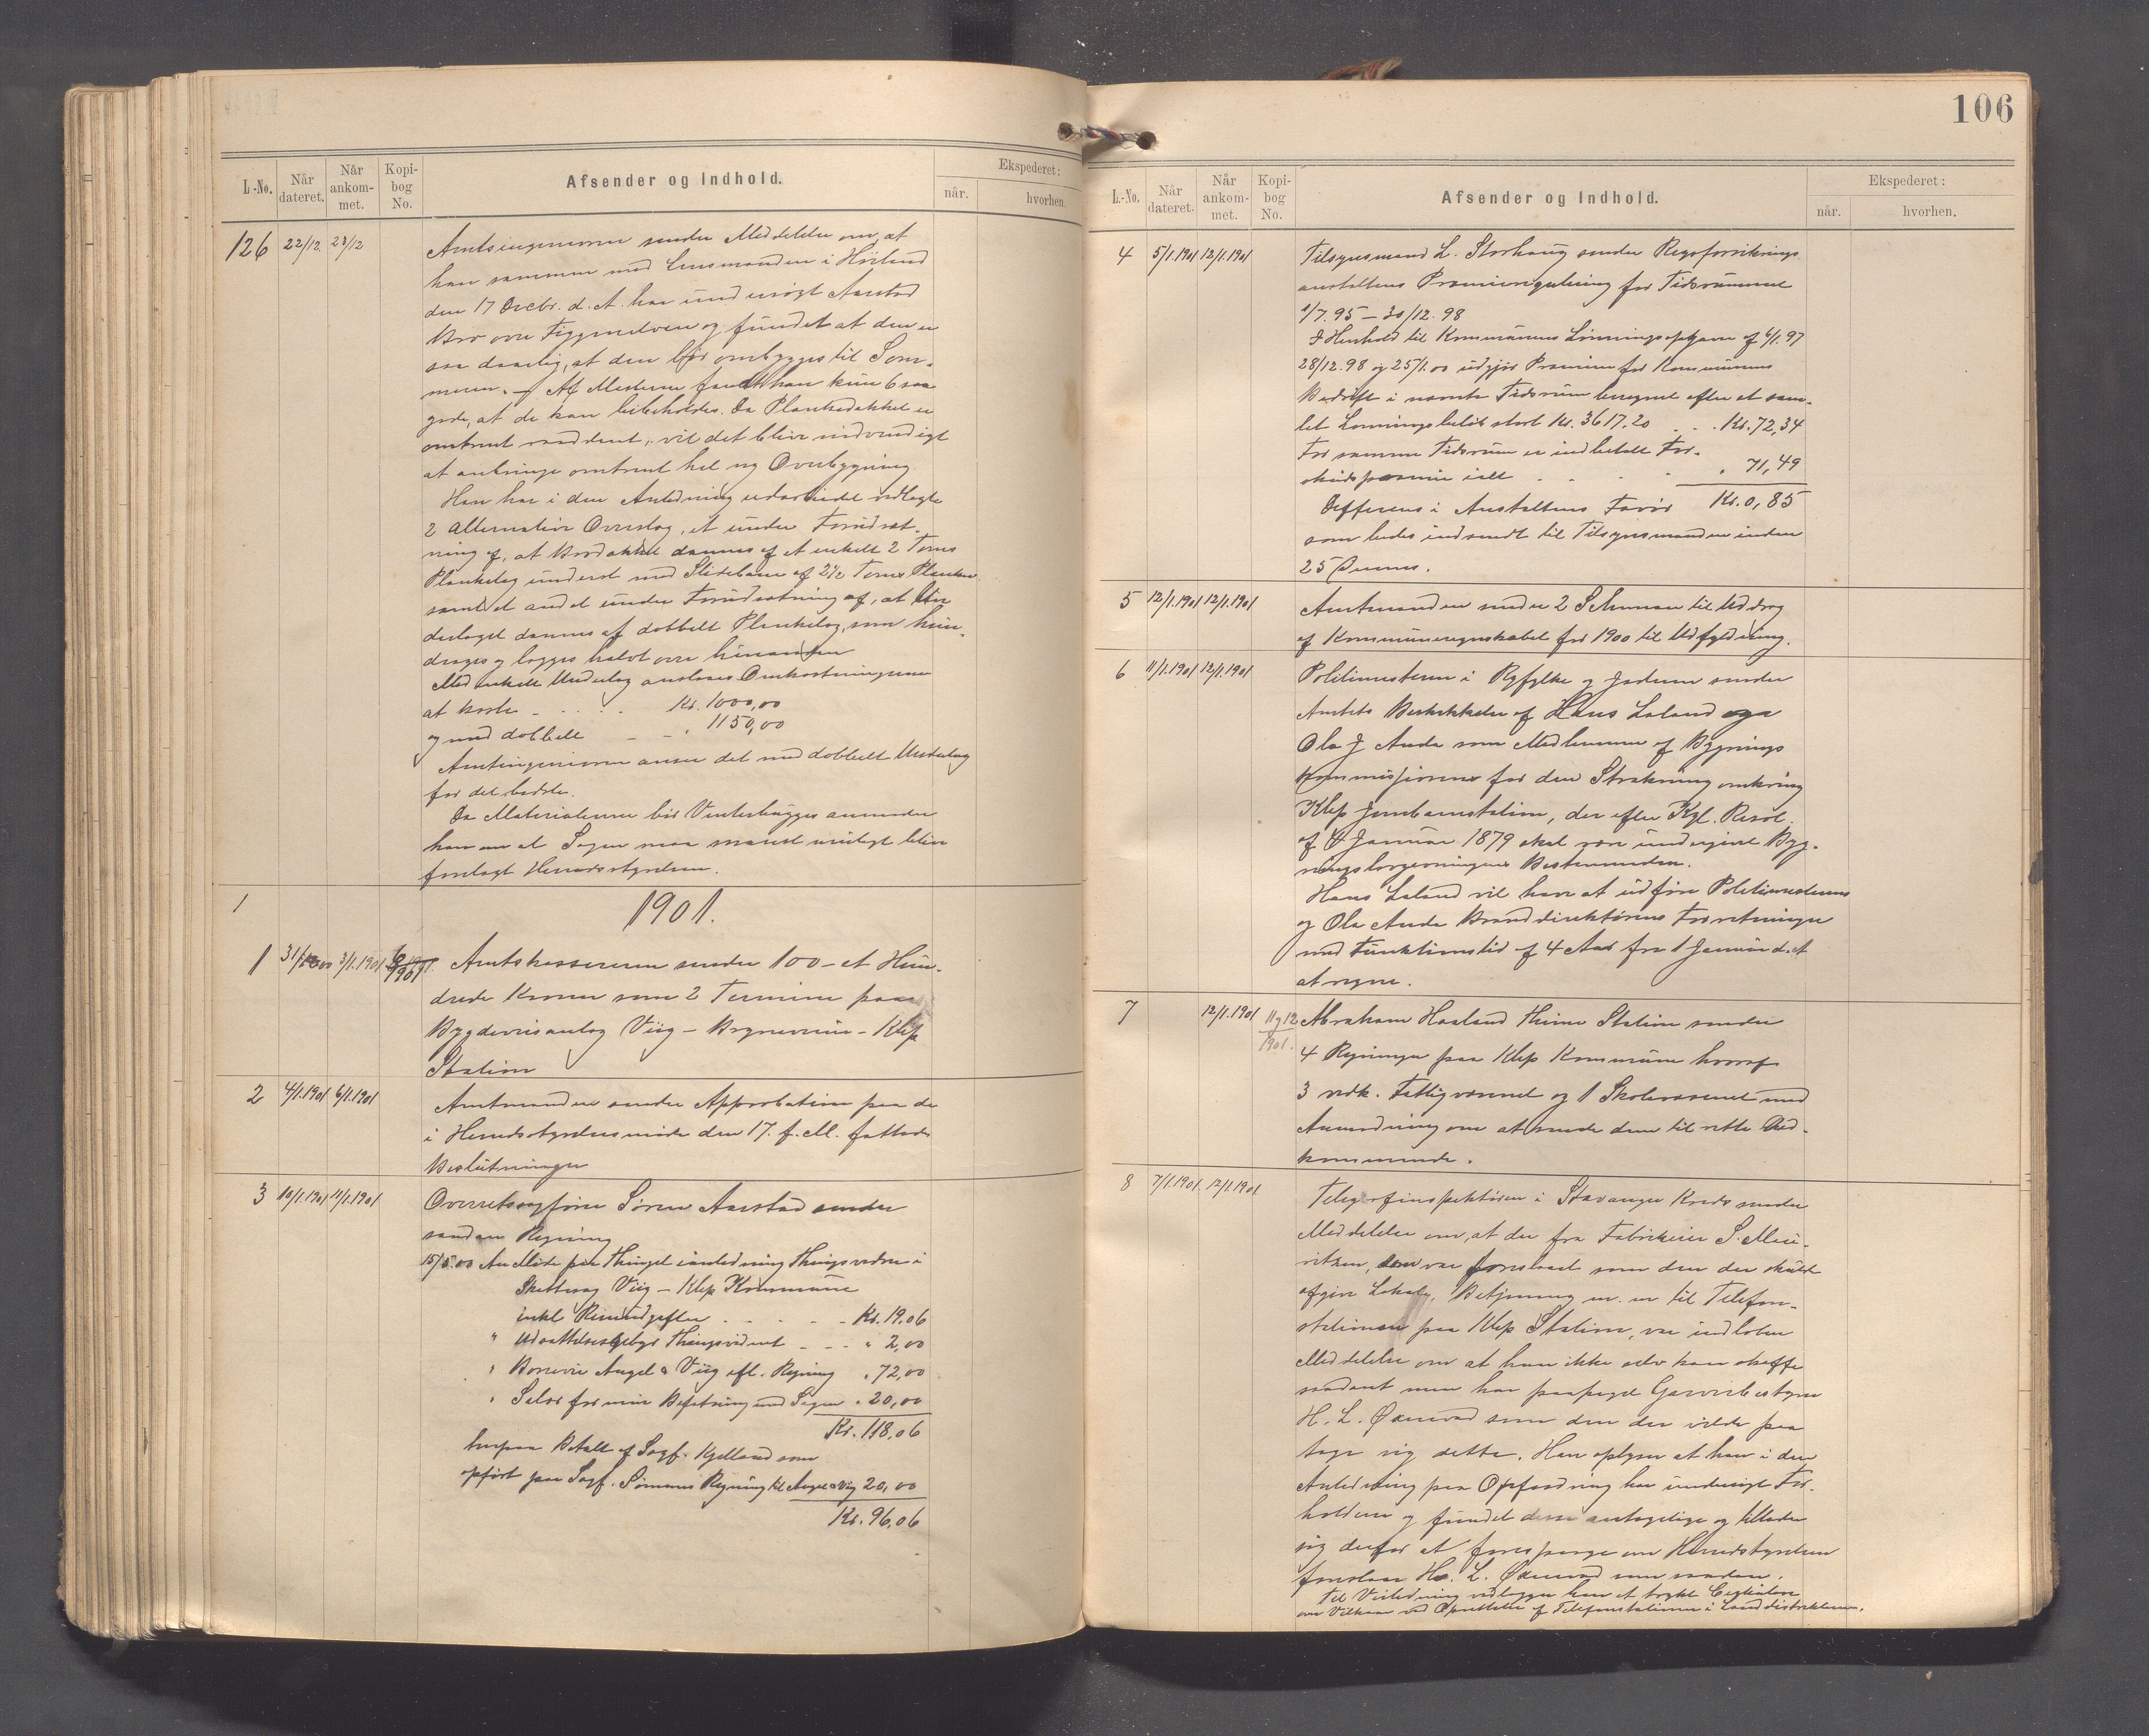 L.-No. Når dateret. Når ankommet. Kopibog No. Afsender og Indhold. Ekspederet: når. hvorhen.
126 22/12. 23/12 Amtsingeniøren sender Meddelelse om, at
han sammen med Lensmanden i Høiland
den 17 Decbr. d. A. har undersøgt Aarstad
Bro over Figgenelven og fundet at den er
saa daarlig, at den bør ombygges til Som-
meren. Af Masterne fandt han kun 6 saa
gode, at de kan bibeholdes. Da Plankedækket er
omtrent raaddent, vil det blive nødvendigt
at anbringe omtrent hel ny Overbygning.
Han har i den Anledning udarbeidet vedlagte
2 alternative Overslag, et under Forudsæt-
ning af, at Brodækket dannes af et enkelt 2 Toms
Plankelag underst med Slidebane af 2½ Toms Planker
samt et andet under Forudsætning af, at Un
derlaget dannes af dobbelt Plankelag, som
drages og lægges halvt over hinanden
Med enkelt Underlag ansloges Omkostningerne
at koste - . . . . Kr. 1000,00
og med dobbelt - - " 1150,00
Amtingeniøren anser det med dobbelt Underlag
for det bedste.
Da Materialerne bør Vinterhugges anmoder
han om at Sagen maa snarest muligt blive
forelagt Herredsstyrelsen.
1
1901.
1 31/12 00 3/1.1901 Amtskassereren sender 100 - et Hun-
drede Kroner som 2 Termin paa
Bygdeveisanlæg Viig - Brynevein - Klep
Station
2 4/1.1901 6/1.1901 Amtmanden sender Approbation paa de
i Herredsstyrelsesmøde den 17. f. M. fattede
Beslutninger
3 10/1.1901 11/1.1901 Overretssagfører Sören Aarstad sender
saadan Regning
15/5.00 An Møde paa Thinget i anledning Thingsvidne i
Skattesag Viig - Klep Kommune
inkl Reiseudgifter . - . - - Kr. 19.06
" Udsættelsesgebyr Thingsvidnet - - - " 2,00
" Angel & Viig efl. Regning " 72,00
" Salær for min Befatning med Sagen " 20,00
Kr. 118.06
herpaa Betalt af Sagf. Kjelland som
opført paa Sagf. Sømmes Regning til Angel & Viig 20,00
Kr. 96,06
106
L.-No. Når dateret. Når ankommet. Kopibog No. Afsender og Indhold. Ekspederet: når. hvorhen.
4 5/1.1901 12/1.1901 Tilsynsmand L. Storhaug sender Rigsforsikrings
anstaltens Præmieregulering for Tidsrummet
1/7.95 - 30/12.98
I Henhold til Kommunens Lønningsopgave af 6/1.97
28/12.98 og 25/1.00 udgjør Præmien for Kommunens
Bedrift i nævnte Tidsrum beregnet efter et sam-
let Lønningsbeløb stort Kr. 3617.20 . - . Kr. 72,34
For samme Tidsrum er indbetalt For-
skudspræmie ialt . . . . " 71,49
Defferens i Anstaltens Favør Kr. 0,85
som bedes indsendt til Tilsynsmanden inden
25 .
5 12/1.1901 12/1.1901 Amtmanden sender 2 Schemaer til Uddrag
af Kommuneregnskabet for 1900 til Udfyldning.
6 11/1.1901 12/1.1901 Politimesteren i Ryfylke og Jæderen sender
Amtets Beskikkelse af Hans Laland og
Ola J Anda som Medlemmer af Bygnings
kommissionen for den Strækning omkring
Klep Jernbanestation, der efter Kgl. Resol.
af 4 Januar 1879 skal være undergivet Byg-
ningslovgivningens Bestemmelser.
Hans Laland vil have at udføre Politimesterens
og Ola Anda Branddirektørens Forretninger
med Funktionstid af 4 Aar fra 1 Januar d. A
at regne.
7 12/1.1901 11 og 12 1901. Abraham Haaland Thime Station sender
4 Regninger paa Klep Kommune hvoraf
3 vedk. Fattigvæsenet og 1 Skolevæsenet med
Anmodning om at sende dem til rette Ved-
kommende.
8 7/1.1901. 12/1.1901. Telegrafinspektøren i Stavanger Kreds sender
Meddelelse om, at der fra Fabrikeier S. Mau-
ritzen, som var foreslaaet som den der skulde
afgive Lokale, Betjening m. m til Telefon-
stationen paa Klep Station, var indløben
Meddelelse om at han ikke selv kan skaffe
saadant men har paapeget Garveribestyrer
H. L. som den der vilde paa
tage sig dette. Han oplyser at han i den
Anledning paa Opfordring har undersøgt For-
holdene og fundet disse antagelige og tillader
sig derfor at forespørge om Herredstyrelsen
foreslaar H. L. som saadan.
Til Veiledning vedlægger han et trykt Cirkulære
om Vilkaar ved Oprettelse af Telefonstationer i Landdistrikterne.